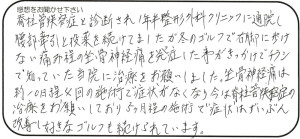 感想をお書きください
脊柱管狭窄症と診断され1年半整形外科クリニックに通院し
腰部牽引と投薬を続けてましたが冬のゴルフで右脚に歩け
ない痛み程の坐骨神経痛を発症した事がきっかけでチラシ
で知っていた当院に治療をお願いしました。坐骨神経痛は
約1ヶ月半4回の施術で症状がなくなり今は脊柱管狭窄症の
治療をお願いしており5ヶ月程の施術で症状はずいぶん
改善し好きなゴルフも続けられています。